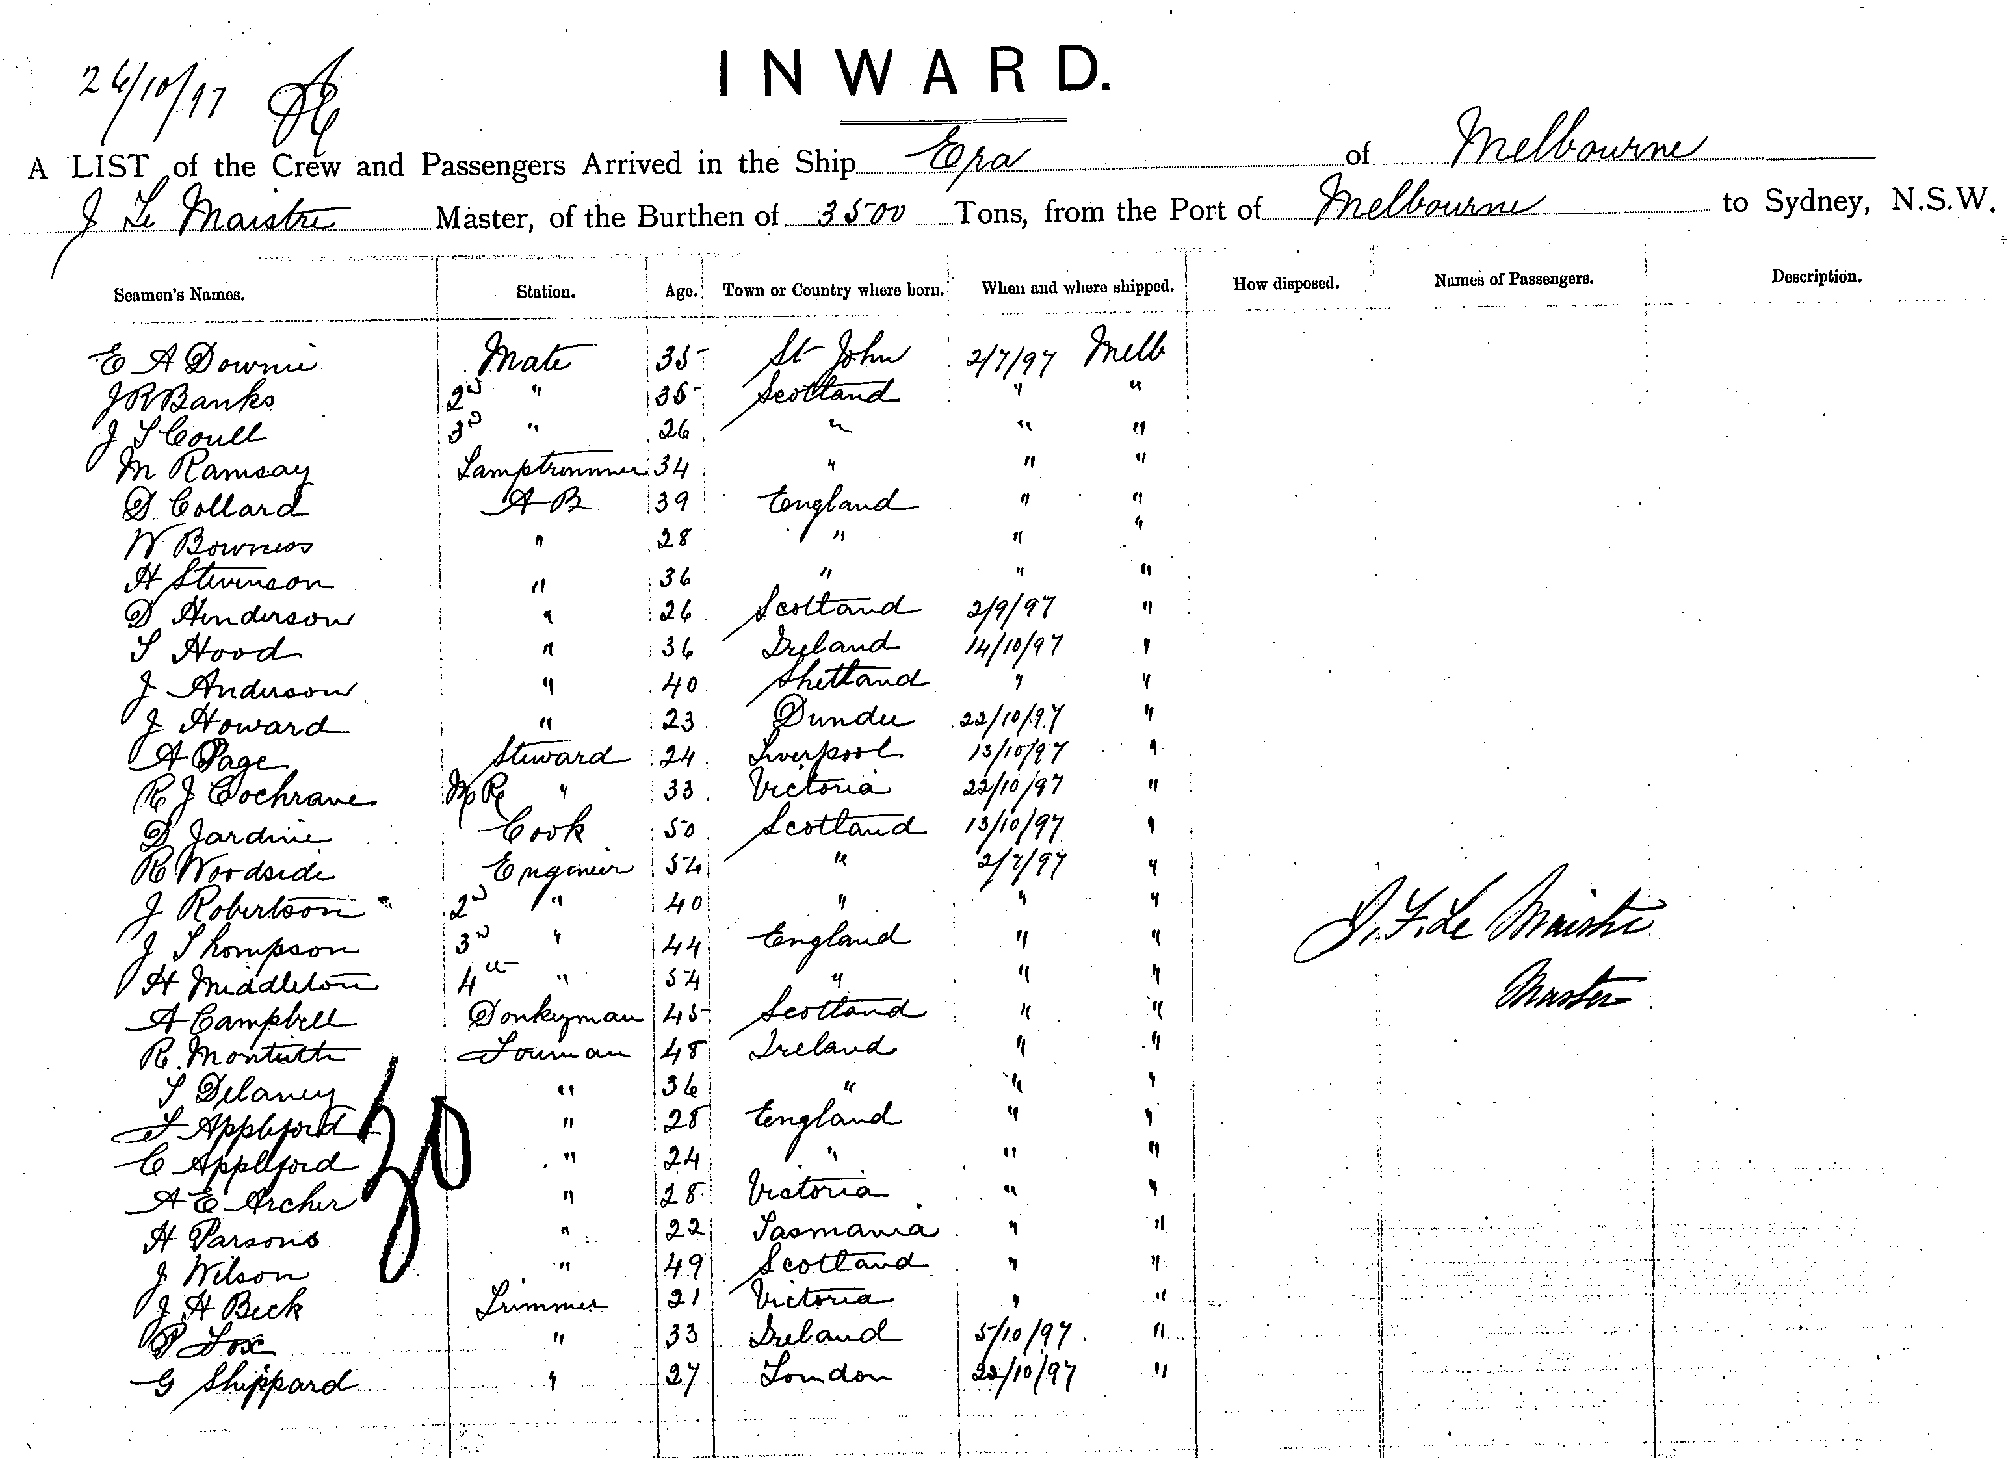 26/10/97
INWARD.
A LIST of the Crew and Passengers Arrived in the Ship Era of Melbourne
J Le Maistre Master, of the Burthen of 3500 Tons, from the Port of Melbourne to Sydney, N.S.W.
Seamen's Names. Station. Age. Town or Country where born. When and where shipped. How disposed. Names of Passengers. Description.
E A Downie Mate 35 St John 2/7/97 Melb
J R Banks 2nd " 35 Scotland " "
J S Coull 3rd " 26 " " "
M Ramsay Lamptrimmer 34 " " "
D Collard A B 39 England " "
W Bowness " 28 " " "
H Stevenson " 36 " " "
D Henderson " 26 Scotland 2/9/97 "
S Hood " 36 Ireland 14/10/97 "
J Anderson " 40 Shetland " "
J Howard " 23 Dundee 22/10/97 "
A Page Steward 24 Liverpool 13/10/97 "
R J Cochrane " 33 Victoria 22/10/97 "
D Jardine Cook 50 Scotland 13/10/97 "
R Woodside Engineer 54 " 2/7/97 "
J Robertson 2nd " 40 " " "
J Thompson 3rd " 44 England " "
H Middleton 4th " 54 " " "
A Campbell Donkeyman 45 Scotland " "
R. Montieth Fireman 48 Ireland " "
S Delaney " 36 " " "
F Appleford " 28 England " "
C Appleford " 24 " " "
A E Archer " 28 Victoria " "
H Parsons " 22 Tasmania " "
J Wilson " 49 Scotland " "
J H Beck Trimmer 21 Victoria " "
P Fox " 33 Ireland 5/10/97 "
G Shippard " 27 London 22/10/97 "
30
J. F. Le Maistre
Master